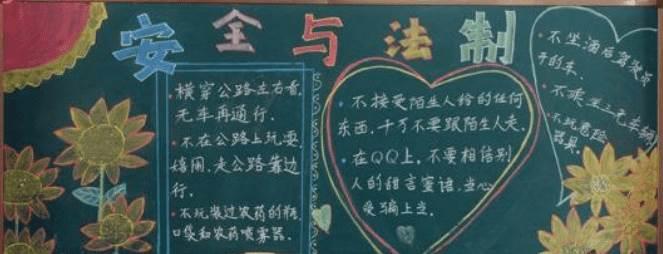 安全与法制
·横穿公路左右看,
无车再通行.
·不在公路上玩耍
嬉闹,走公路靠边
行.
·不玩装过农药的瓶
口袋和农药喷雾器.
·不接受陌生人给的任何
东西,千万不要跟陌生人走.
·在QQ上,不要相信别
人的甜言蜜语,当心
受骗上当.
·不坐酒后驾驶
的车.
·不乘坐三无车辆
·不玩危险
器具.